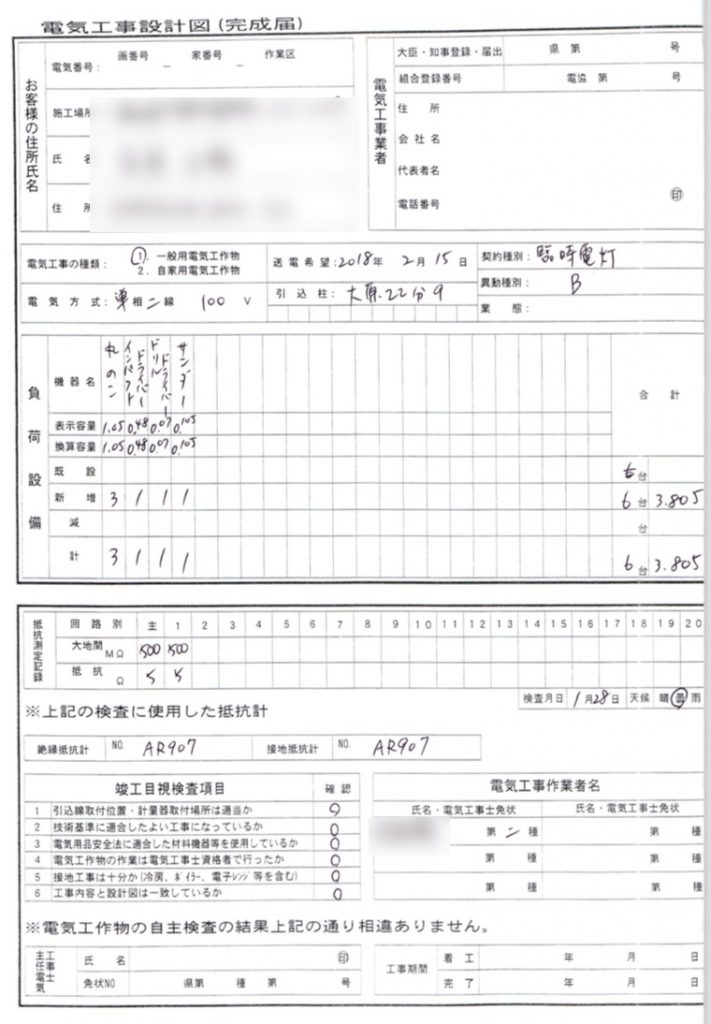 電気工事設計図(完成届)
お客様の住所氏名
画番号 家番号 作業区
電気番号: － －
施工場所
氏 名
住 所
電気工事業者
大臣・知事登録・届出 県 第 号
組合登録番号 電協 第 号
住 所
会社名
代表者名
電話番号
印
電気工事の種類: ①. 一般用電気工作物
2. 自家用電気工作物
送電希望: 2018年 2月 15日
契約種別: 臨時電灯
電気方式: 単相二線 100 V
引込柱: 大原.22分9
異動種別: B
業態:
負荷設備
機器名 丸のこ インパクトドライバー ドリルドライバー サンダー 合計
表示容量 1.05 0.48 0.07 0.105
換算容量 1.05 0.48 0.07 0.105
既設 台
新増 3 1 1 1 6台 3.805
減 台
計 3 1 1 1 6台 3.805
抵抗測定記録
回路別 主 1 2 3 4 5 6 7 8 9 10 11 12 13 14 15 16 17 18 19 20
大地間 MΩ 500 500
抵抗 Ω 5 5
検査月日 1月28日 天候 晴 曇 雨
※上記の検査に使用した抵抗計
絶縁抵抗計 NO. AR907 接地抵抗計 NO. AR907
竣工目視検査項目 確認
1 引込線取付位置・計量器取付場所は適当か 0
2 技術基準に適合したよい工事になっているか 0
3 電気用品安全法に適合した材料機器等を使用しているか 0
4 電気工作物の作業は電気工事士資格者で行ったか 0
5 接地工事は十分か(冷房、ﾎﾞｲﾗｰ、電子ﾚﾝｼﾞ等を含む) 0
6 工事内容と設計図は一致しているか 0
電気工事作業者名
氏名・電気工事士免状 氏名・電気工事士免状
第二種 第 種
第 種 第 種
第 種 第 種
※電気工作物の自主検査の結果上記の通り相違ありません。
主任電気工事士
氏 名 印
免状NO 県第 種 第 号
工事期間
着工 年 月 日
完了 年 月 日